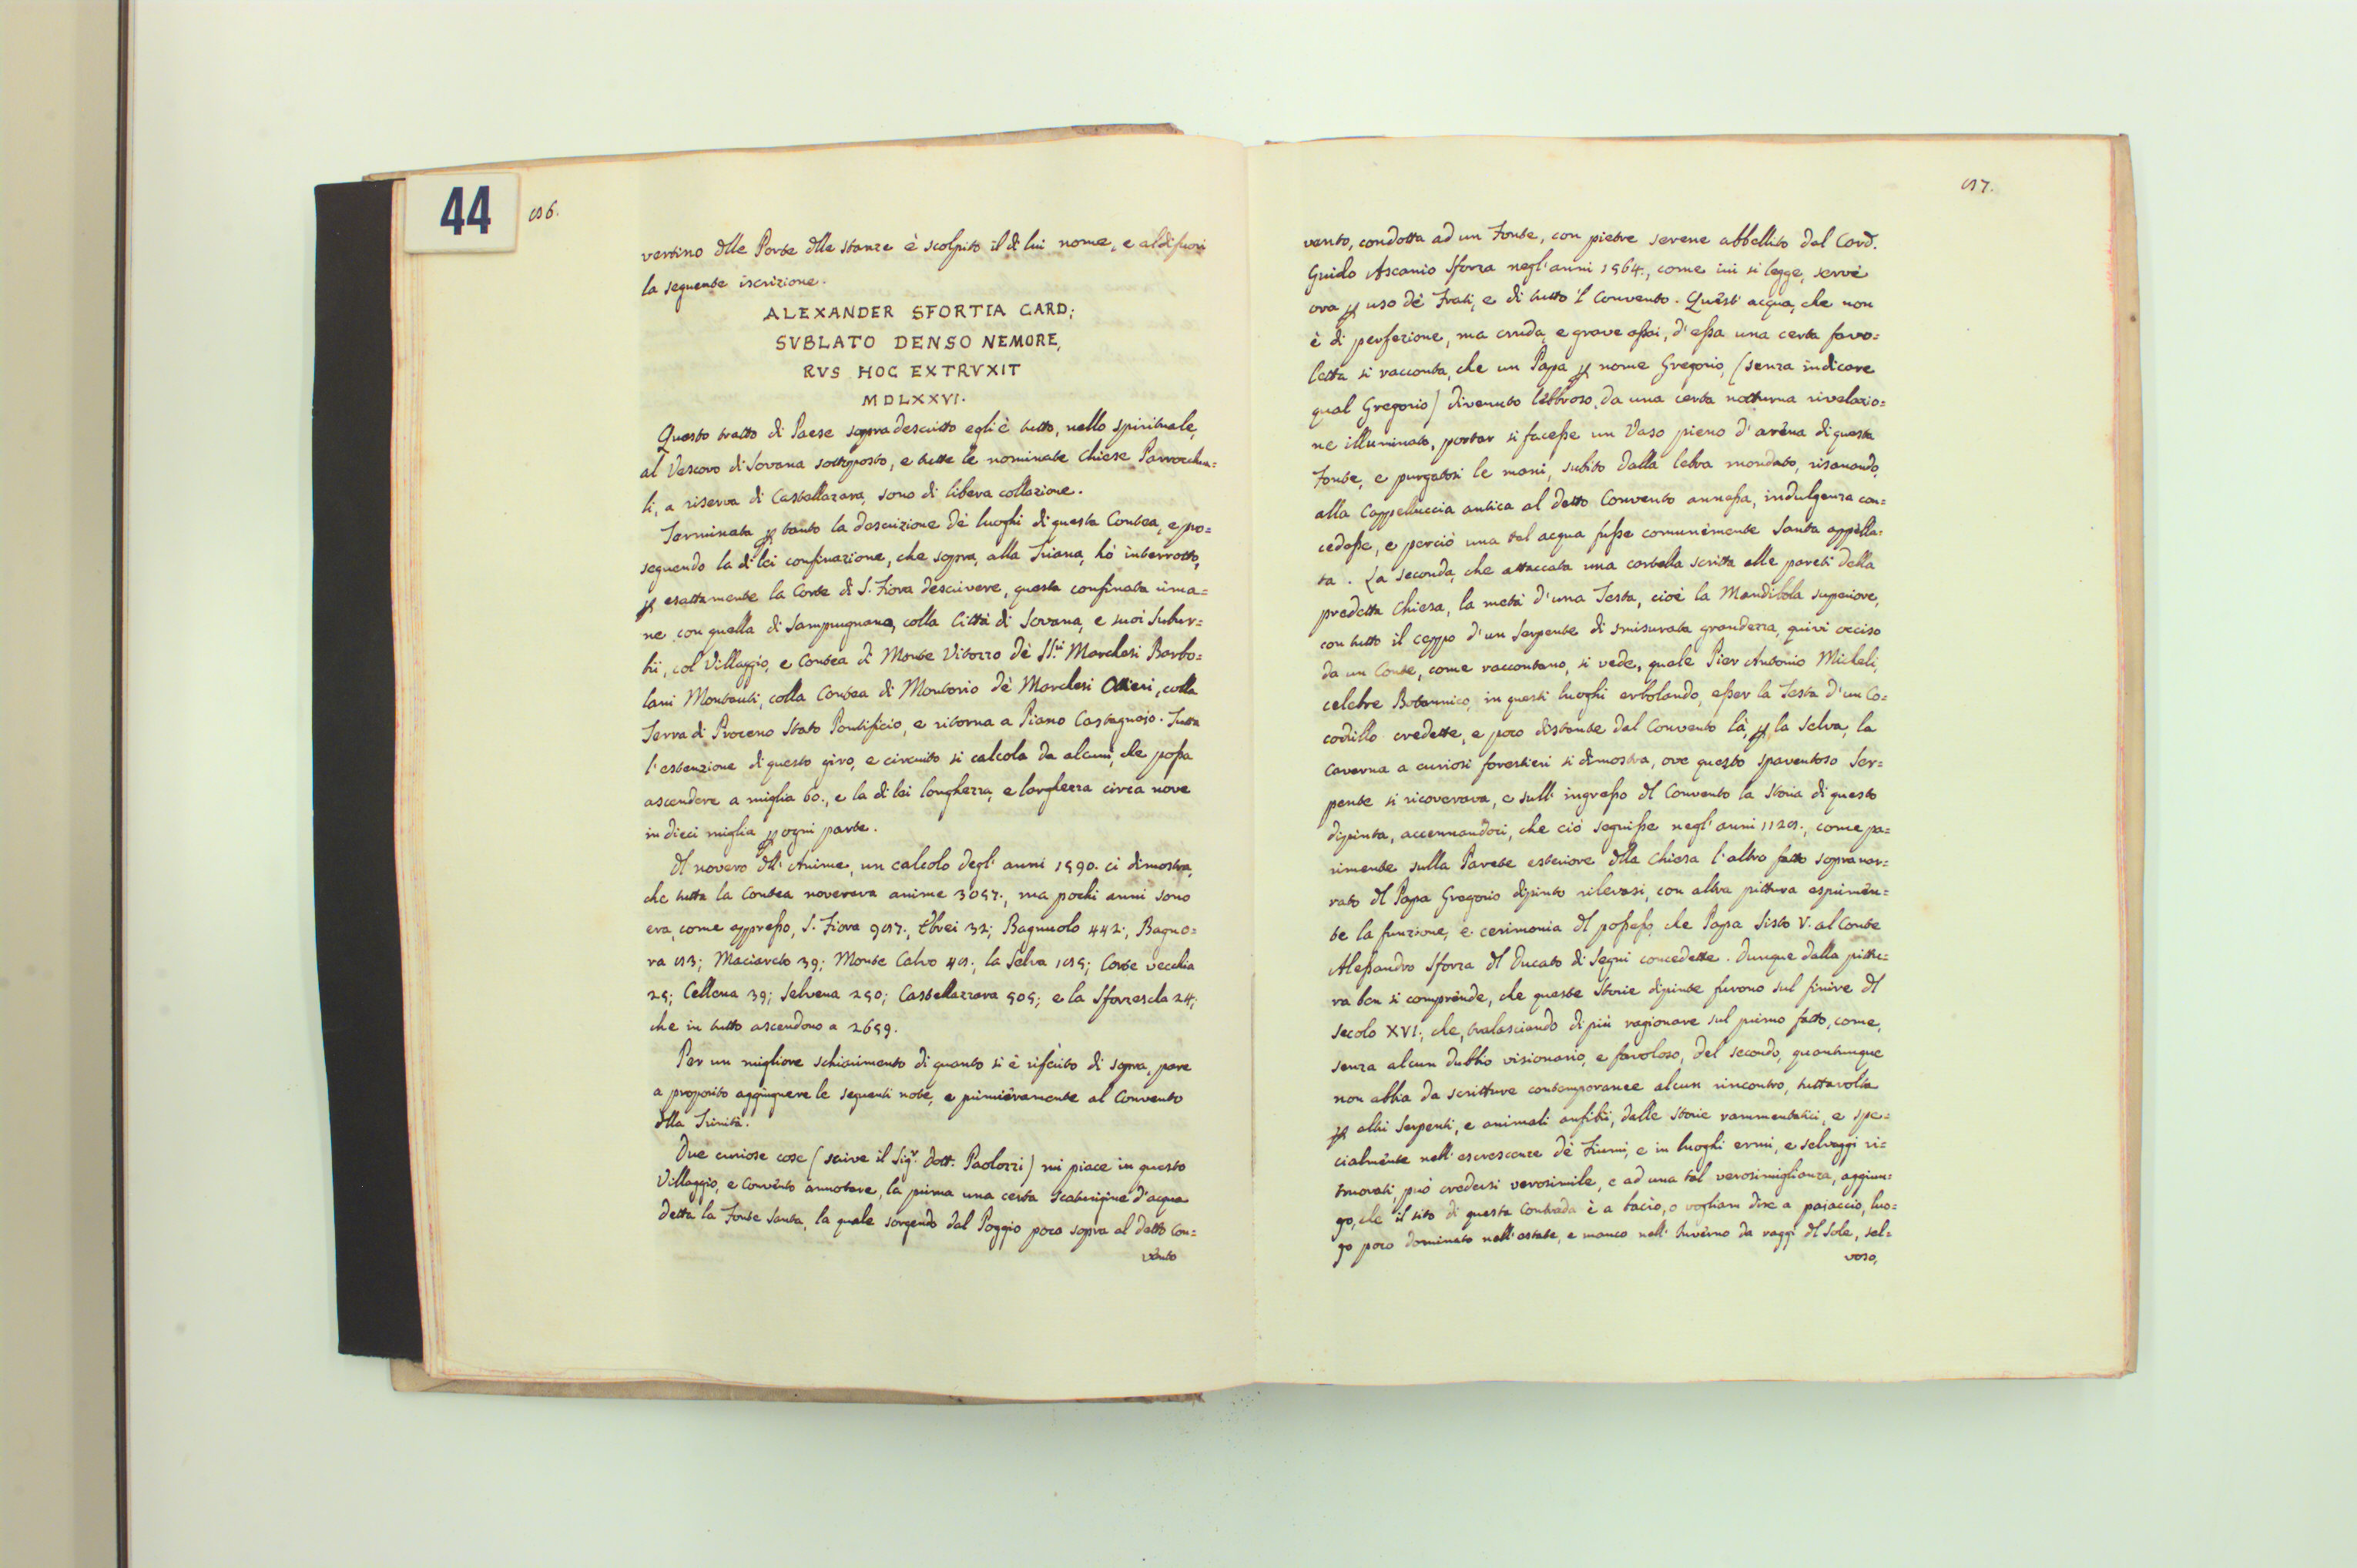 44
86.
vertino dlle Porte dlle stanze è scolpito il di lui nome, e al di fuori
la seguente iscrizione.
ALEXANDER SFORTIA CARD;
SVBLATO DENSO NEMORE,
RVS HOC EXTRVXIT
MDLXXVI.
Questo tratto di Paese sopradescritto egli è tutto, nello spirituale,
al Vescovo di Sovana sottoposto, e tutte le nominate Chiese Parrocchia=
li, a riserva di Castellazara, sono di libera collazione.
Terminata p tanto la descrizione dè luoghi di questa Contea, e pro=
seguendo la di lei confinazione, che sopra, alla Triana, hò interrotto,
p esattamente la Corte di S. Fiora descrivere, questa confinata rima=
ne con quella di Sampugnana, colla Città di Sovana, e suoi Subur=
bii, col Villaggio, e Contea di Monte Vitozzo dè SS.ri Marchesi Barbo=
lani Montauti, colla Contea di Montorio dè Marchesi Ottieri, colla
Terra di Proceno Stato Pontificio, e ritorna a Piano Castagnajo. Tutta
l'estenzione di questo giro, e circuito si calcola da alcuni, che possa
ascendere a miglia 60., e la di lei longhezza, e larghezza circa nove
in dieci miglia p ogni parte.
Il novero dll' Anime, un calcolo degl' anni 1590. ci dimostra,
che tutta la Contea noverava anime 3057., ma pochi anni sono
era, come appresso, S. Fiora 987., Ebrei 32; Bagnuolo 442., Bagno=
ra 83; Maciareto 39; Monte Calvo 48.; la Selva 185; Corte vecchia
25; Cellena 39; Selvena 250; Castellazzara 505; e la Sforzesca 24;
che in tutto ascendono a 2659.
Per un migliore schiarimento di quanto si è riferito di sopra, pare
a proposito aggiugnere le seguenti note, e primieramente al Convento
dlla Trinità.
Due curiose cose (scrive il Sig.r Dott: Paolozzi) mi piace in questo
Villaggio, e Convento annotare, la prima una certa scaturigine d'acqua
detta la Fonte Santa, la quale sorgendo dal Poggio poco sopra al detto Con=
vento
87.
vento, condotta ad un Fonte, con pietre serene abbellito dal Card.
Guido Ascanio Sforza negl' anni 1564., come ivi si legge, serve
ora p uso dè Frati, e di tutto 'l Convento. Quest' acqua, che non
è di perfezione, ma cruda, e grave assai, d'essa una certa favo=
letta si racconta, che un Papa p nome Gregorio, (senza indicare
qual Gregorio) divenuto lebbroso, da una certa notturna rivelazio=
ne illuminato, portar si facesse un Vaso pieno d'arena di questa
Fonte, e purgatosi le mani, subito dalla lebra mondato, risanando,
alla Cappelluccia antica al detto Convento annessa, indulgenza con=
cedesse, e perciò una tal acqua fusse comunemente Santa appella=
ta. La seconda, che attaccata una cartella scritta alle pareti della
predetta Chiesa, la metà d'una Testa, cioè la Mandibola superiore,
con tutto il ceppo d'un Serpente di smisurata grandezza, quivi ucciso
da un Conte, come raccontano, si vede, quale Pier Antonio Micheli,
celebre Botannico, in questi luoghi erbolando, esser la Testa d'un Co=
codrillo credette, e poco distante dal Convento là, p la Selva, la
Caverna a curiosi forestieri si dimostra, ove questo spaventoso Ser=
pente si ricoverava, e sull' ingresso dl Convento la Storia di questo
dipinta, accennandoci, che ciò seguisse negl' anni 1128., come pa=
rimente sulla Parete esteriore dlla Chiesa l'altro fatto sopranar=
rato dl Papa Gregorio dipinto rilevasi, con altra pittura esprimen=
te la funzione, e cerimonia dl possesso, che Papa Sisto V. al Conte
Alessandro Sforza dl Ducato di Segni concedette. Dunque dalla pittu=
ra ben si comprende, che queste Storie dipinte furono sul finire dl
Secolo XVI.; che, tralasciando di più ragionare sul primo fatto, come,
senza alcun dubbio visionario, e favoloso, del secondo, quantunque
non abbia da scritture contemporanee alcun rincontro, tuttavolta
p altri Serpenti, e animali anfibi, dalle Storie rammentatici, e spe=
cialmente nell' escrescenze dè Fiumi, e in luoghi ermi, e selvaggi ri=
truovati, può credersi verosimile, e ad una tal verosimiglianza, aggiun=
go, che il sito di questa Contrada è a bacìo, o vogliam dire a pajaccio, luo=
go poco dominato nell' estate, e manco nell' Inverno da raggi dl Sole, sel=
voso,